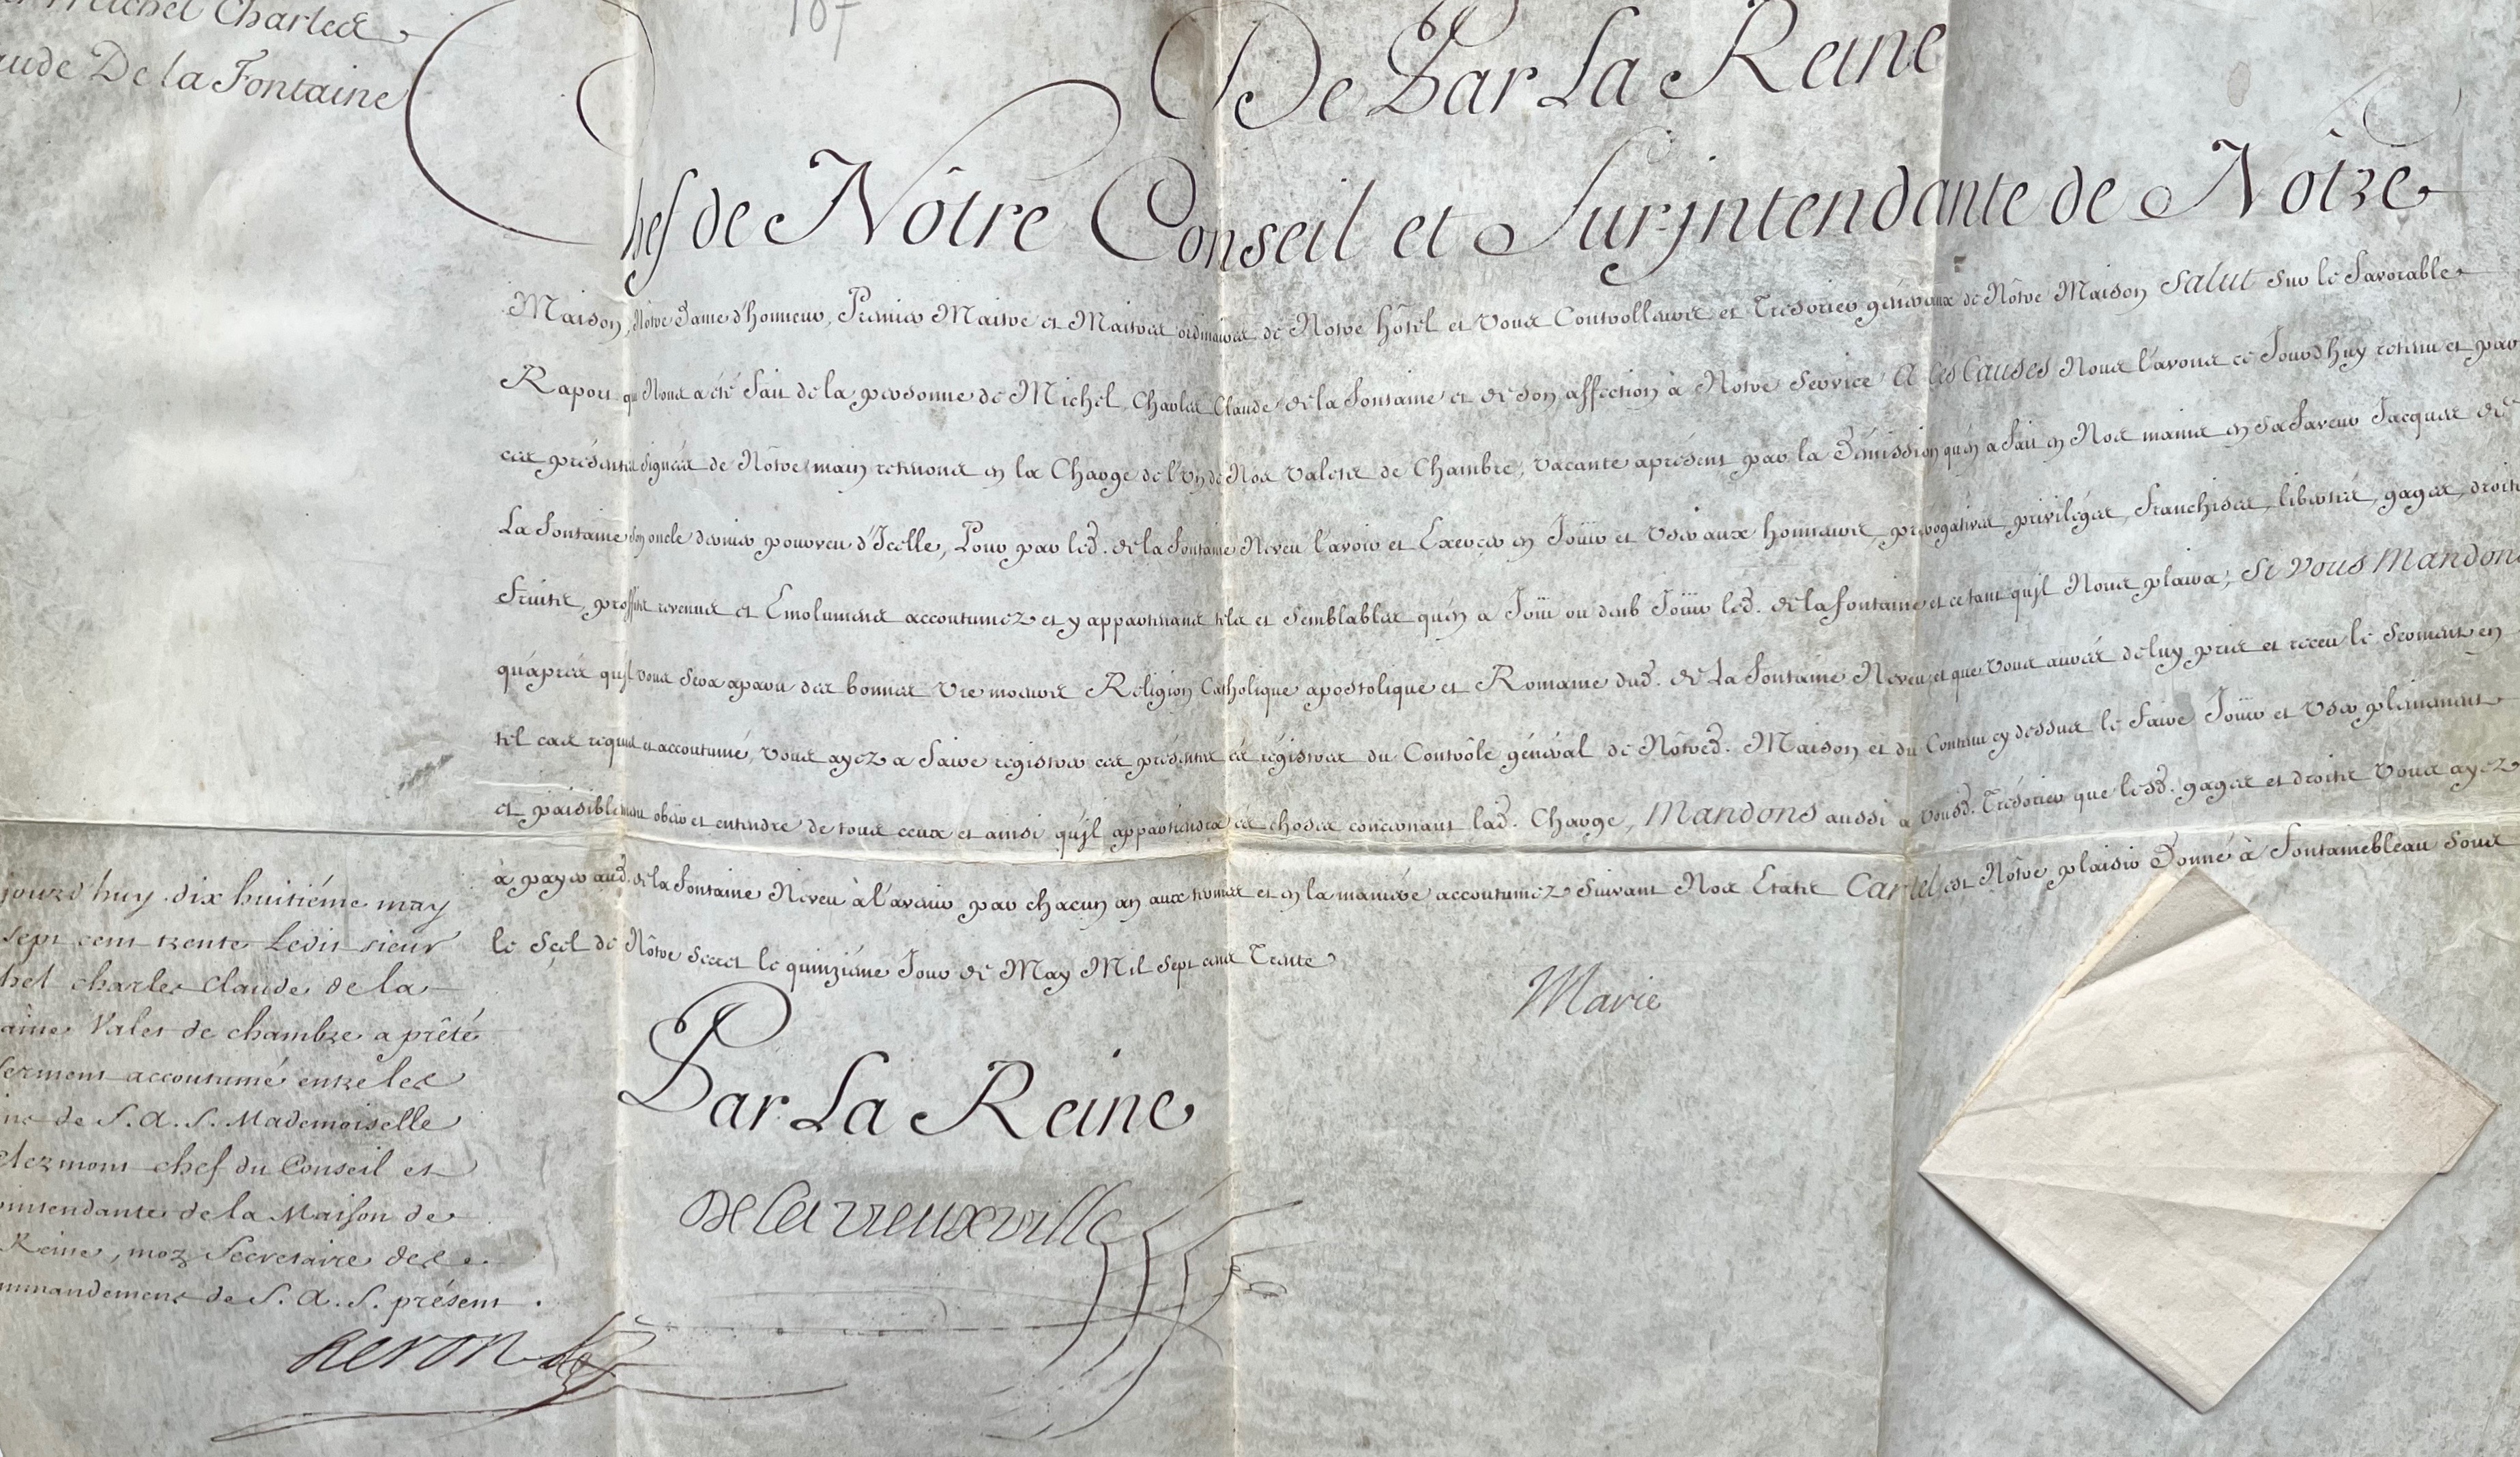 Michel Charles
De la Fontaine
107
De Par La Reine
Chef de Nôtre Conseil et Sur-jntendante de Nôtre
Maison, Nôtre Dame d'honneur, Premier Maitre et Maitres ordinaires de Nôtre hôtel et vous Controlleurs et Trésoriers généraux de Nôtre Maison Salut sur le favorable
Raport qui Nous a été fait de la personne de Michel, Charles Claude de la Fontaine et de son affection à Nôtre service A Ces Causes Nous l'avons ce Jourd'huy retenu et par
ces présentes signées de Nôtre main retenons en la Charge de l'Un de Nos Valets de Chambre, vacante aprésent par la Démission qu'en a fait en Nos mains en sa faveur Jacques de
La fontaine son oncle dernier pourveu d'Icelle, Pour par led. de la fontaine Neveu l'avoir et Exercer en Joüir et User aux honneurs, prérogatives, privilèges, franchises, libertés, gages, droits
fruits, proffits revenus et Emolumens accoutumez et y appartenans tels et semblables qu'en a Joüi ou deub Joüir led. de la fontaine et ce tant qu'jl Nous plaira; Si Vous Mandons
qu'après qu'jl vous sera aparu des bonnes Vie moeurs Religion Catholique apostolique et Romaine dud. de La fontaine Neveu et que vous aurés de luy pris et receu le serment en
tel cas requis et accoutumé, vous ayez a faire régistrer ces présentes ès régistres du Contrôle général de Nôtred. Maison et du Contenu cy dessus le faire Joüir et User pleinement
et paisiblement obéir et entendre de tous ceux et ainsi qu'jl appartiendra ès choses concernant lad. Charge, Mandons aussi a vousd. Trésoriers que lesd. gages et droits Vous ayez
à payer aud. de la fontaine Neveu à l'avenir par chacun an aux termes et en la manière accoutumez suivant Nos Etats Car tel est Nôtre plaisir Donné à fontainebleau sous
le Scel de Nôtre secret le quinziéme Jour de May Mil sept cens Trente
Marie
Par La Reine
De la vieuxville
jourd'huy dix huitiéme may
sept cent trente Ledit sieur
charles Claude de la
Valet de chambre a prêté
serment accoutumé entre les
de S. A. S. Mademoiselle
clermont chef du Conseil et
de la Maison de
Reine, moy Secretaire des
de S. A. S. présent.
heron